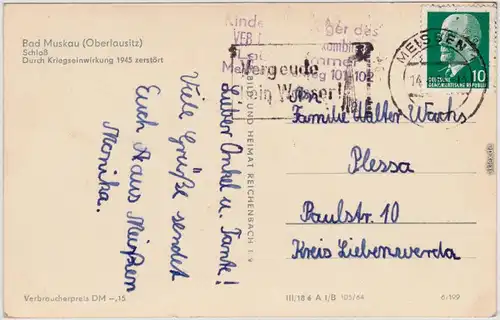 Bad Muskau (Oberlausitz)
Schloß
Durch Kriegseinwirkung 1945 zerstört
Lieber Onkel u. Tante!
Viele Grüße sendet
Euch aus Meißen
Monika.
Verbraucherpreis DM –,15
BILD UND HEIMAT REICHENBACH i. V.
III/18/4 A 1/B 105/64
6/109
Kinde ger des
VEB kombin
Me eg 101-102
Vergeude
kein Wasser!
MEISSEN
14
DEUTSCHE
DEMOKRATISCHE REPUBLIK
10
An
Familie Walter Wachs
Plessa
Paulstr. 10
Kreis Liebenwerda